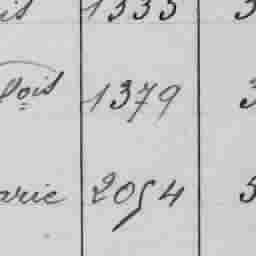 is 1335 3
lois 1379 3
arie 2054 5